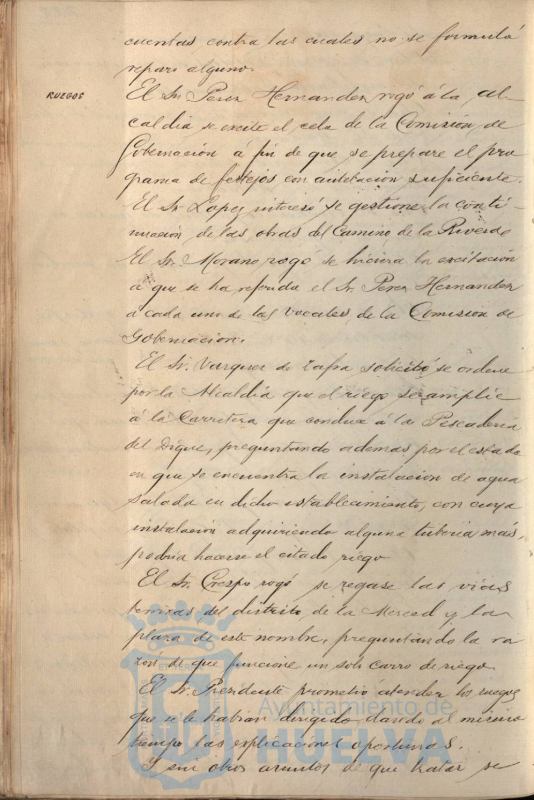 cuentas contra las cuales no se formuló
reparo alguno.
RUEGOS
El Sr. Perez Hernandez rogó á la Al-
caldia se excite el celo de la Comisión de
Gobernación á fin de que se prepare el pro-
grama de festejos con antelación suficiente.
El Sr. Lopez interesó se gestione la conti-
nuación de las obras del Camino de la Rivera
El Sr. Morano rogó se hiciera la excitación
á que se ha referido el Sr. Perez Hernandez
á cada uno de los vocales de la Comisión de
Gobernación.
El Sr. Vazquez de Zafra solicitó se ordene
por la Alcaldia que el riego se amplie
á la Carretera que conduce á la Pescaderia
del Dique, preguntando ademas por el estado
en que se encuentra la instalación de agua
salada en dicho establecimiento, con cuya
instalación adquiriendo alguna tuberia más,
podria hacerse el citado riego
El Sr. Crespo rogó se regase las vias
del distrito de la Merced y la
plaza de este nombre, preguntando la ra-
zón de que funcione un solo carro de riego.
El Sr. Presidente prometió atender los ruegos
que se le habian dirigido dando al mismo
tiempo las explicaciones oportunas.
Y sin otros asuntos de que tratar se
Ayuntamiento de
HUELVA